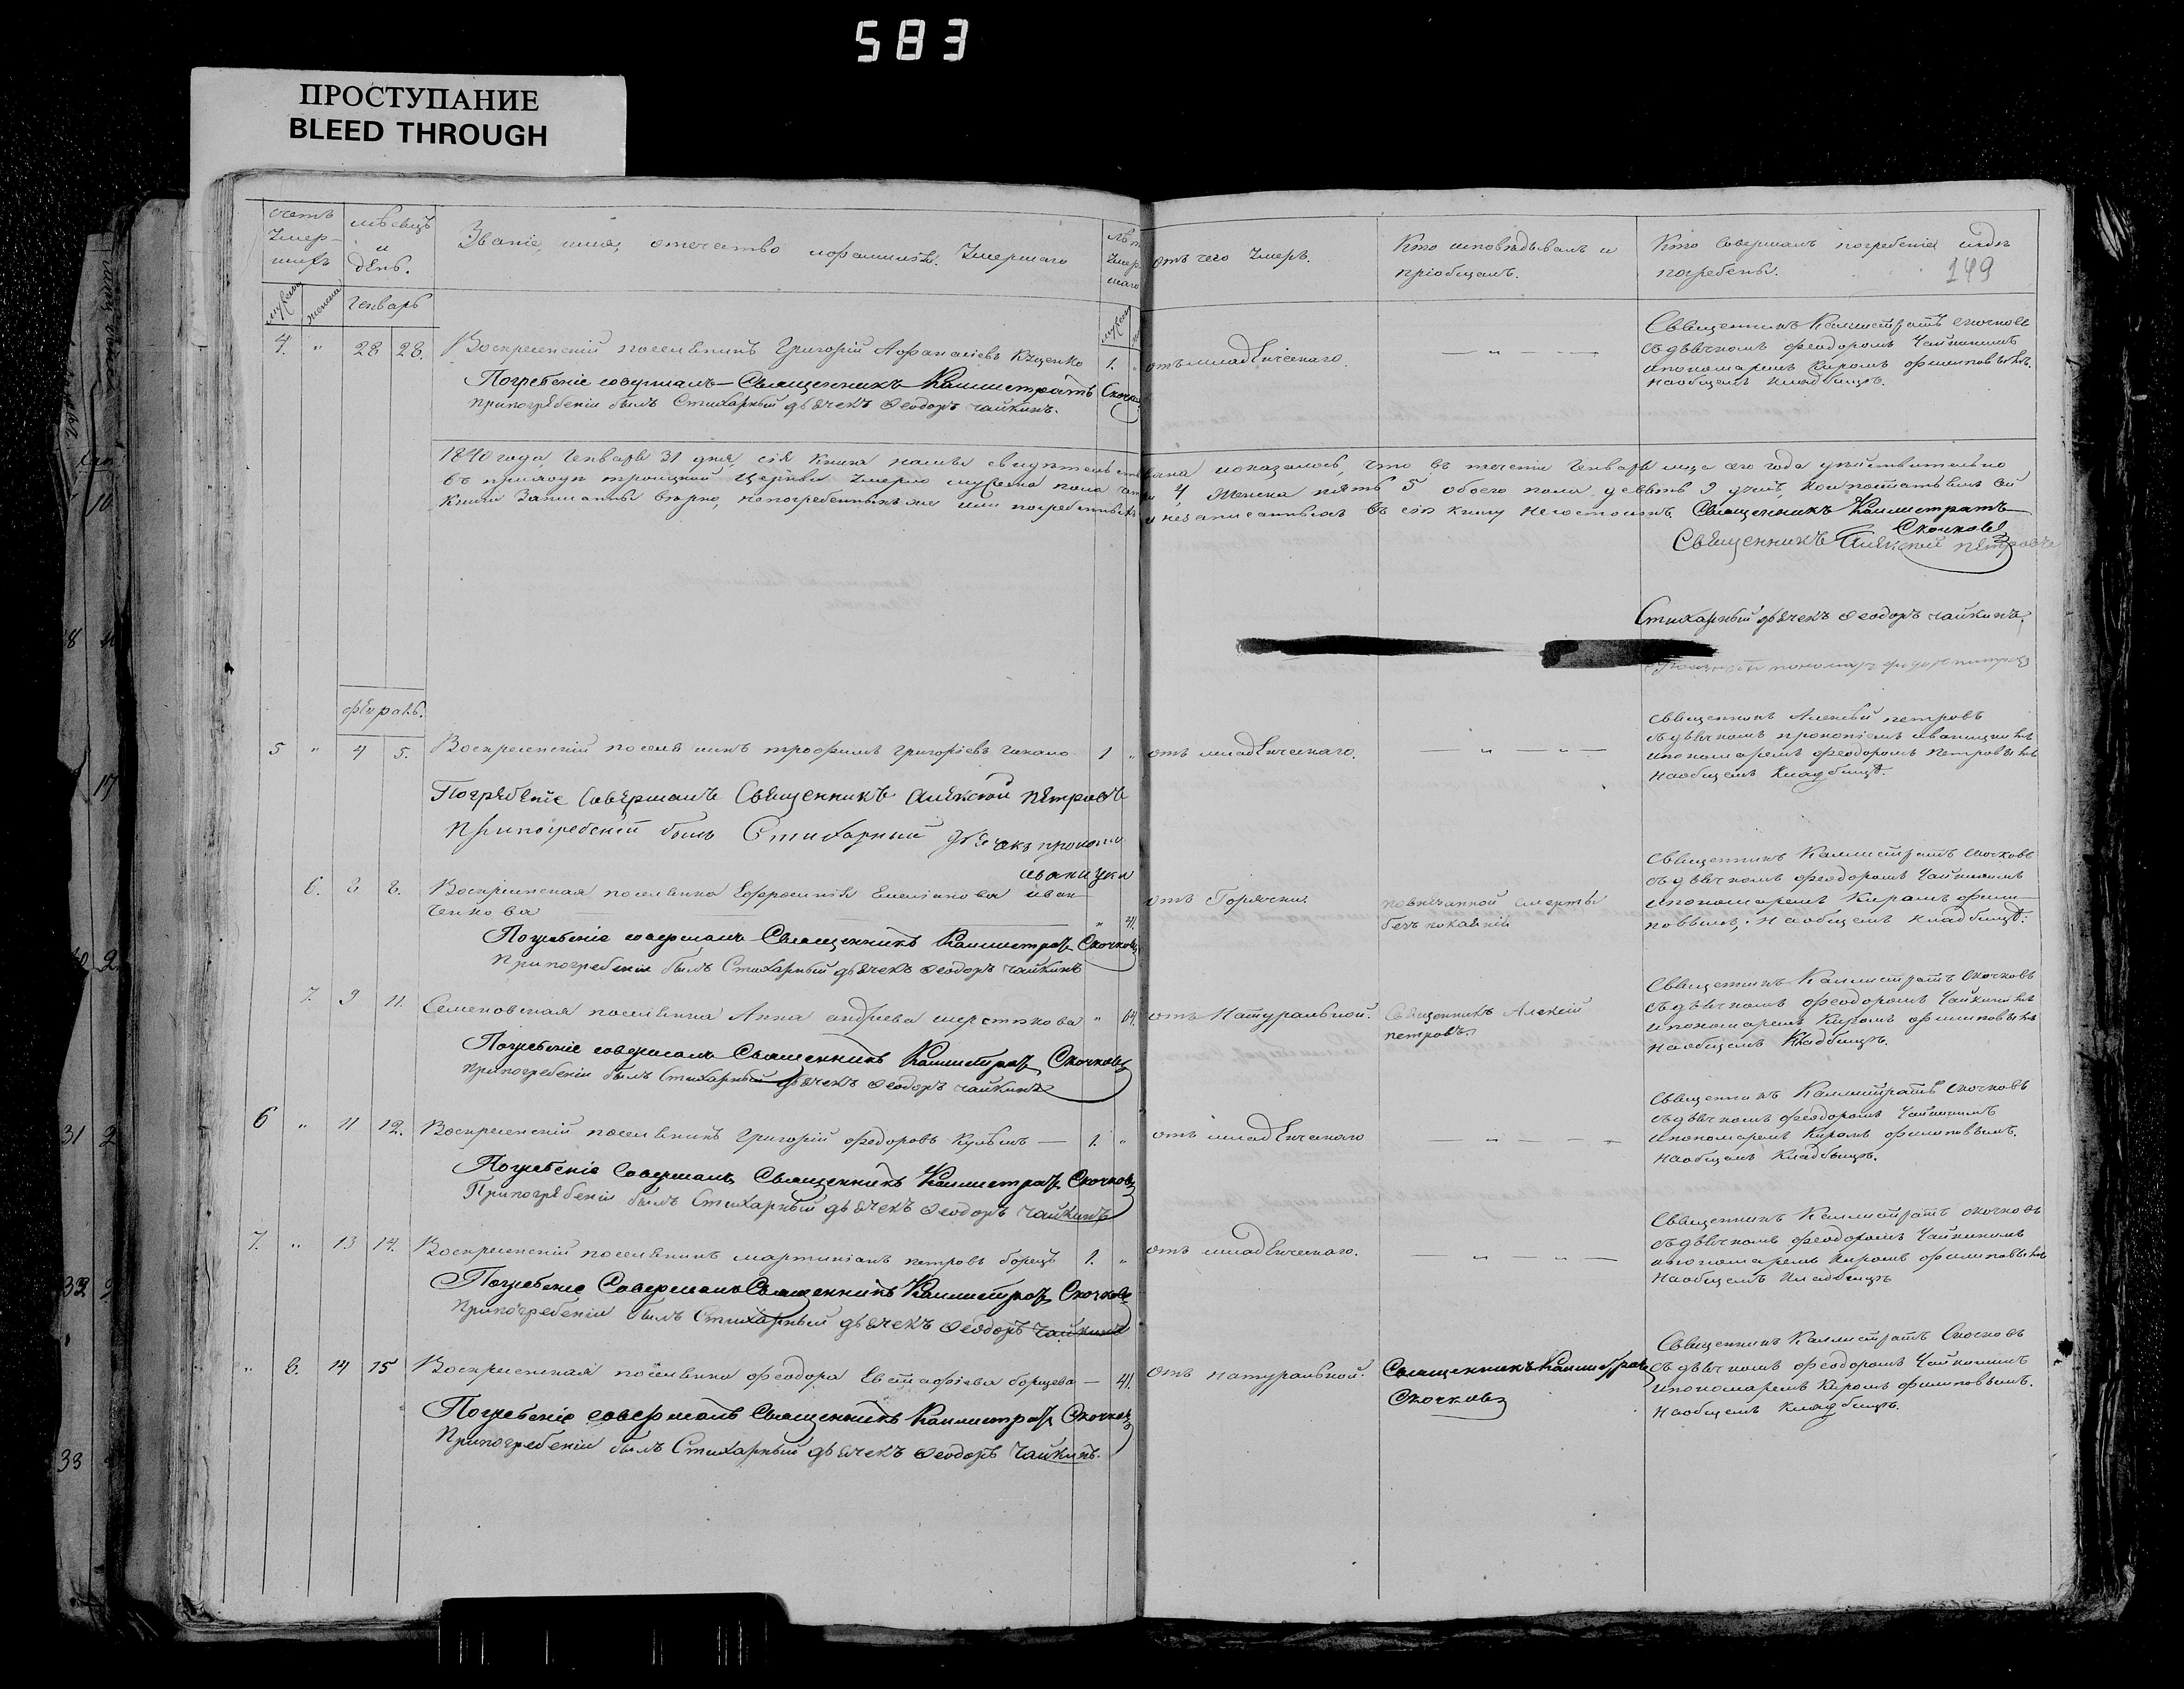 583
ПРОСТУПАНИЕ
BLEED THROUGH
счетъ умер-шихъ
мѣсяцъ и день.
Званіе, имя, отечество и фамилія. Умершаго
лѣта умер-шаго
отъ чего умеръ.
Кто исповѣдывалъ и пріобщалъ.
Кто совершалъ погребеніе и гдѣ погребены.
149
Генварь
4. " 28 28. Воскресенскій поселянинъ Григорій Афанасіевъ Куценко 1. "
отъ младенческаго.
Священникъ Каллистратъ Скочковъ
съ дьячкомъ Феодоромъ Чайкинымъ
и пономаремъ Киромъ Филиповымъ.
на общемъ кладбищѣ.
Погребеніе совершалъ Священникъ Каллистратъ Скочковъ
при погребеніи былъ Стихарный дьячекъ Ѳеодоръ Чайкинъ.
1840 года, Генваря 31 дня, сія книга нами свидѣтельствована и оказалось, что въ теченіи Генваря мца сего года дѣйствительно
въ приходѣ Троицкой Церкви умерло мужеска пола четыри 4 женска пять 5 обоего пола девять 9 душъ,
книгѣ записаны вѣрно, непогребенныхъ же или погребенныхъ и незаписанныхъ въ сію книгу не состоитъ. Священникъ Каллистратъ
Скочковъ
Священникъ Алексей Петровъ
Стихарный дьячекъ Ѳеодоръ Чайкинъ,
февраль.
5 " 4 5. Воскресенскій поселянинъ Трофимъ Григоріевъ 1 "
отъ младенческаго.
Священникъ Алексѣй Петровъ
съ дьячкомъ Прокопіемъ
и пономаремъ Феодоромъ Петровымъ
на общемъ кладбищѣ.
Погребеніе совершалъ Священникъ Алексей Петровъ
при погребеніи былъ Стихарный дьячекъ
6. 8 8. Воскресенская поселянка Евфросинія Емеліанова Иван-
ченкова " 41.
отъ Горячки.
по внезапной смерты
безъ покаянія
Священникъ Каллистратъ Скочковъ
съ дьячкомъ Феодоромъ Чайкинымъ
и пономаремъ Киромъ Фили-
повымъ. на общемъ кладбищѣ.
Погребеніе совершалъ Священникъ Каллистратъ Скочковъ
При погребеніи былъ Стихарный дьячекъ Ѳеодоръ Чайкинъ
7. 9 11. Семеновская поселянка Анна Андреева Шерстюкова " 64.
отъ Натуральной.
Священникъ Алексій
Петровъ.
Священникъ Каллистратъ Скочковъ
съ дьячкомъ Феодоромъ Чайкинымъ
и пономаремъ Киромъ Филиповымъ
на общемъ кладбищѣ.
Погребеніе совершалъ Священникъ Каллистратъ Скочковъ
При погребеніи былъ Стихарный дьячекъ Ѳеодоръ Чайкинъ
6 " 11 12. Воскресенскій поселянинъ Григорій Федоровъ 1. "
отъ младенческаго
Священникъ Каллистратъ Скочковъ
съ дьячкомъ Феодоромъ Чайкинымъ
и пономаремъ Киромъ Филиповымъ.
на общемъ кладбищѣ.
Погребеніе совершалъ Священникъ Каллистратъ Скочковъ
При погребеніи былъ Стихарный дьячекъ Ѳеодоръ Чайкинъ
7. " 13 14. Воскресенскій поселянинъ Мартиніанъ Петровъ Борецъ 1. "
отъ младенческаго.
Священникъ Каллистратъ Скочковъ
съ дьячкомъ Феодоромъ Чайкинымъ
и пономаремъ Киромъ Филиповымъ
на общемъ кладбищѣ
Погребеніе Совершалъ Священникъ Каллистратъ Скочковъ
При погребеніи былъ Стихарный дьячекъ Ѳеодоръ Чайкинъ
" 8. 14 15 Воскресенская поселянка Феодора Евстафіева Борцева — 41.
отъ натуральной.
Священникъ Каллистратъ
Скочковъ
Священникъ Каллистратъ Скочковъ
съ дьячкомъ Феодоромъ Чайкинымъ
и пономаремъ Киромъ Филиповымъ.
на общемъ кладбищѣ.
Погребеніе совершалъ Священникъ Каллистратъ Скочковъ
При погребеніи былъ Стихарный дьячекъ Ѳеодоръ Чайкинъ.